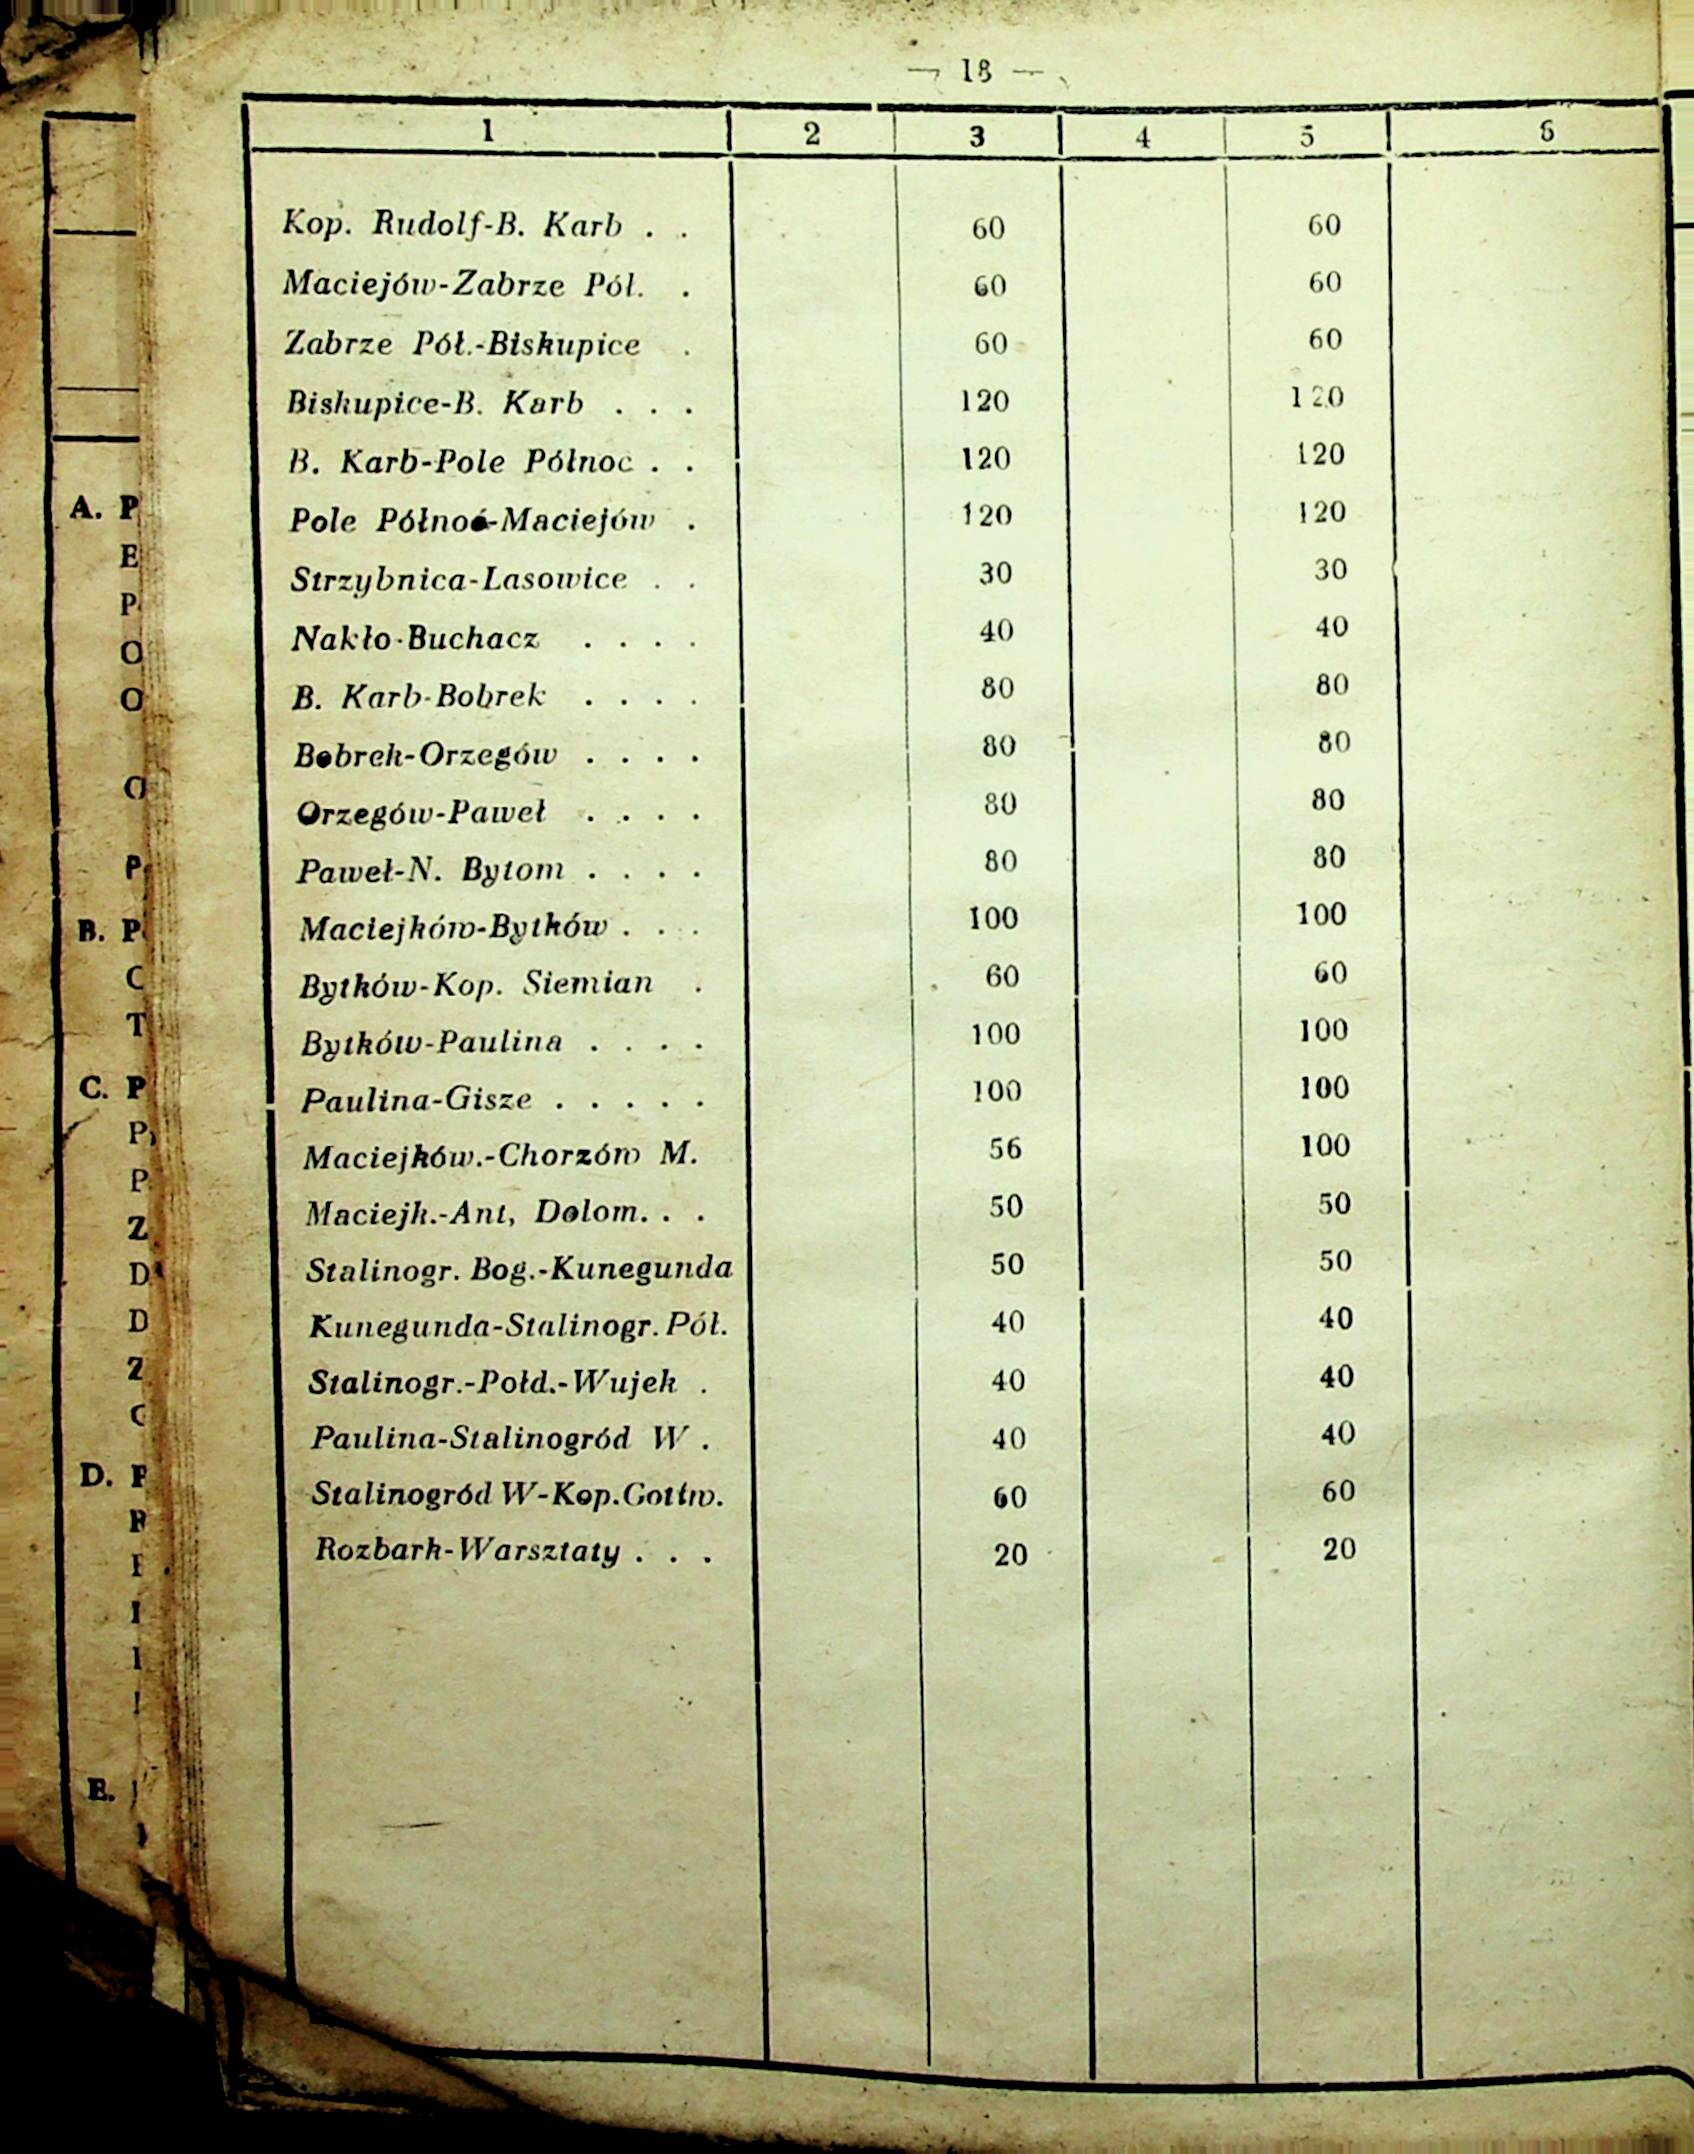 — 18 —
1 2 3 4 5 6
Kop. Rudolf-B. Karb . . 60 60
Maciejów-Zabrze Pół. . 60 60
Zabrze Pół.-Biskupice . 60 60
Biskupice-B. Karb . . . 120 120
B. Karb-Pole Północ . . 120 120
A. P
Pole Północ-Maciejów . 120 120
E
Strzybnica-Lasowice . . 30 30
P
Nakło-Buchacz . . . . 40 40
O
B. Karb-Bobrek . . . . 80 80
O
Bobrek-Orzegów . . . . 80 80
O
Orzegów-Paweł . . . . 80 80
P
Paweł-N. Bytom . . . . 80 80
B. P
Maciejków-Bytków . . . 100 100
C
Bytków-Kop. Siemian . 60 60
T
Bytków-Paulina . . . . 100 100
C. P
Paulina-Gisze . . . . . 100 100
P
Maciejków.-Chorzów M. 56 100
P
Maciejk.-Ant, Dolom. . . 50 50
Z
Stalinogr. Bog.-Kunegunda 50 50
D
Kunegunda-Stalinogr. Pół. 40 40
D
Stalinogr.-Połd.-Wujek . 40 40
Z
Paulina-Stalinogród W . 40 40
D.
Stalinogród W-Kop.Gottw. 60 60
Rozbark-Warsztaty . . . 20 20
E.